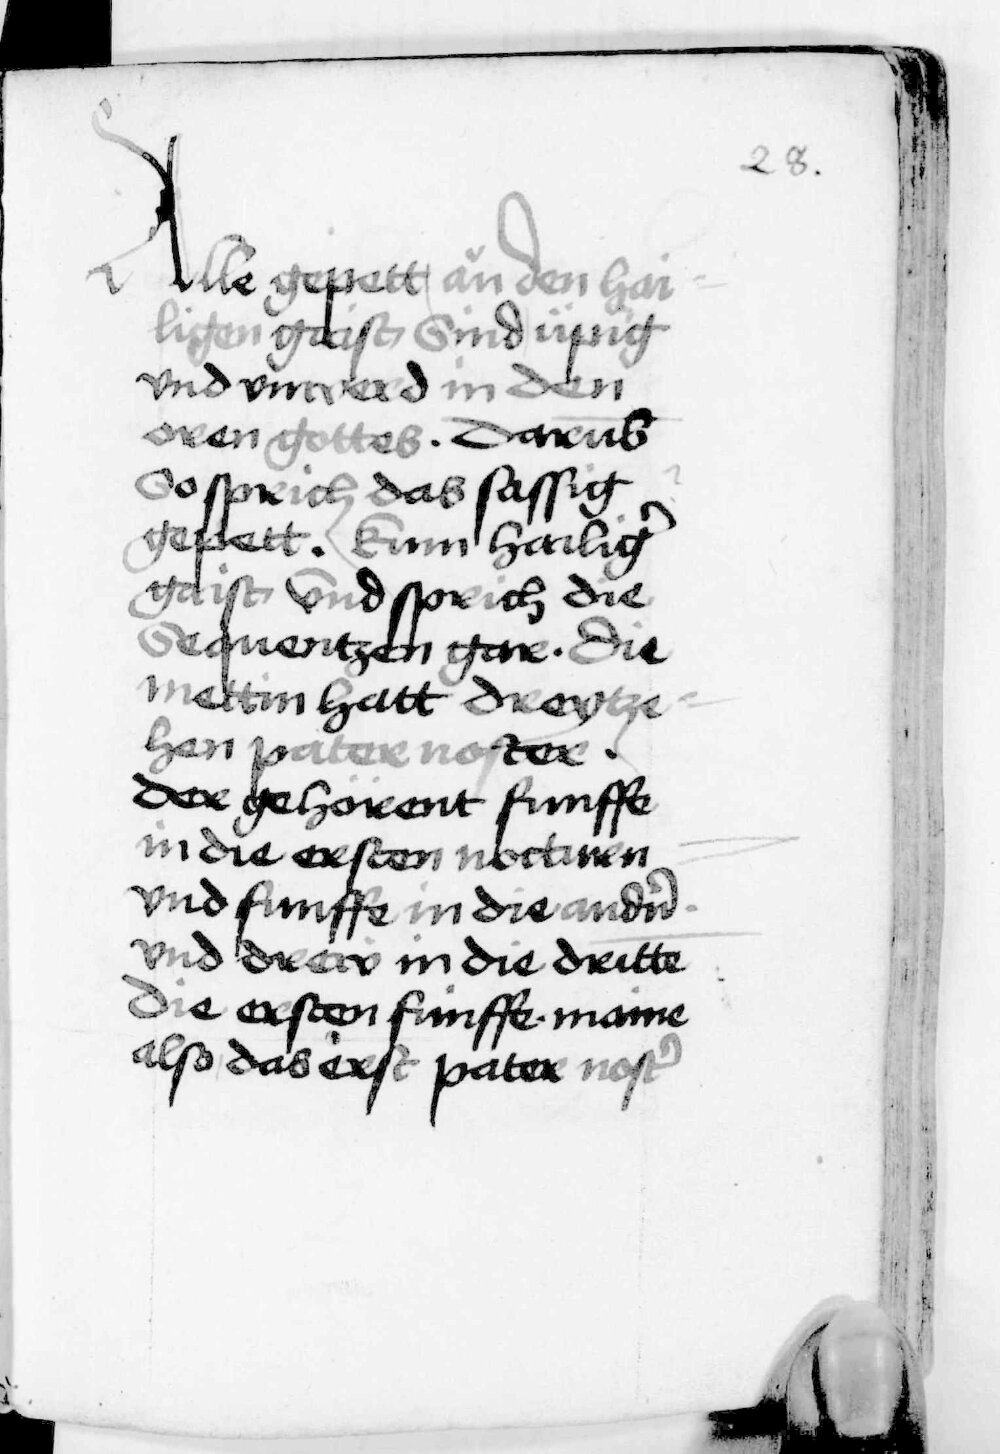 28.
Alle gepett an den hai-
ligen gaist sind üpig
vnd vnwerd in den
oren gottes. Darūb
So sprich das sassig
gepett. Kum hailig᷑
gaist vnd sprich die
Sequentzen gar. Die
mettin hatt dreytze-
hen pater noster.
der gehörent funffe
in die ersten nocturn
vnd funffe in die andn᷑.
vnd dreiv in die dritte
Die ersten funffe. maine
also das erst pater nost᷑